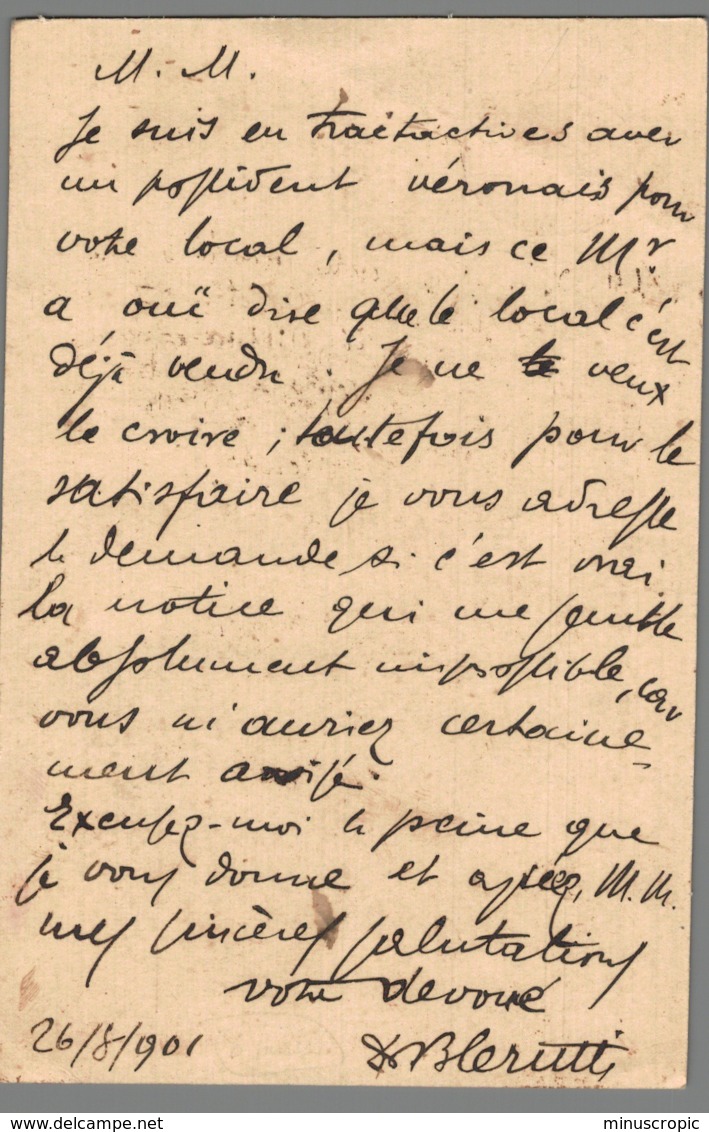 M. M.
Je suis en traitactives avec
un possident véronais pour
votre local, mais ce Mr
a ouï dire que le local c'est
déjà vendu. Je ne veux
le croire ; toutefois pour le
satisfaire je vous adresse
la demande si c'est vrai
la notice qui me semble
absolument impossible, car
vous m'auriez certaine=
ment avisé.
Excusez-moi la peine que
je vous donne et agréez, M.M.
mes sincères salutations
votre devoué
26/8/901
minuscropic